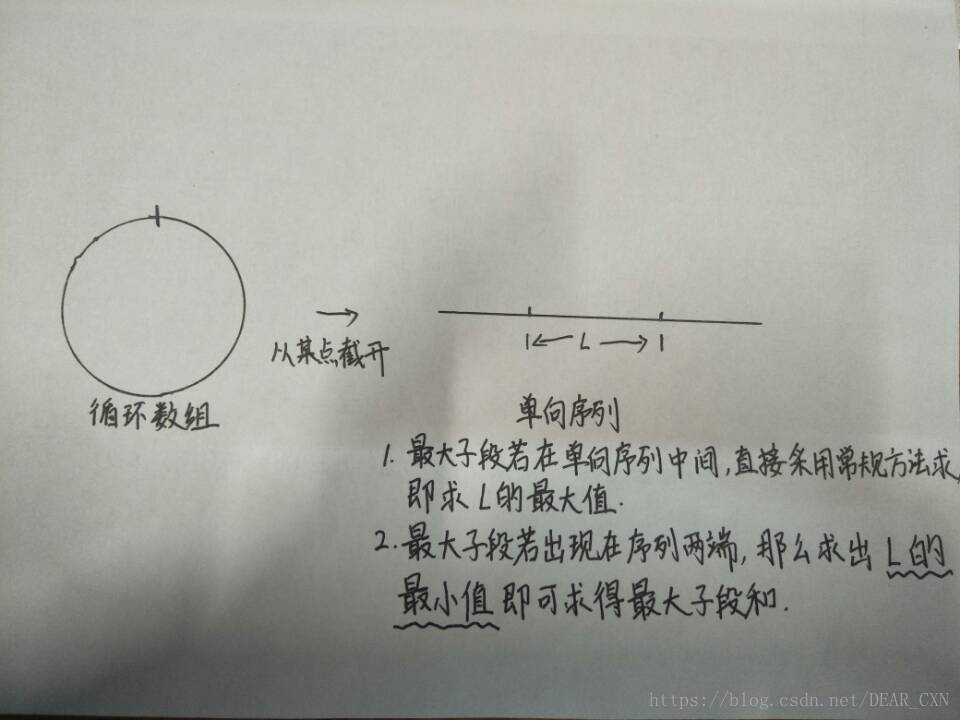 从某点截开
循环数组
L
单向序列
1. 最大子段若在单向序列中间,直接采用常规方法求,
即求L的最大值.
2. 最大子段若出现在序列两端,那么求出L的
最小值即可求得最大子段和.
https://blog.csdn.net/DEAR_CXN